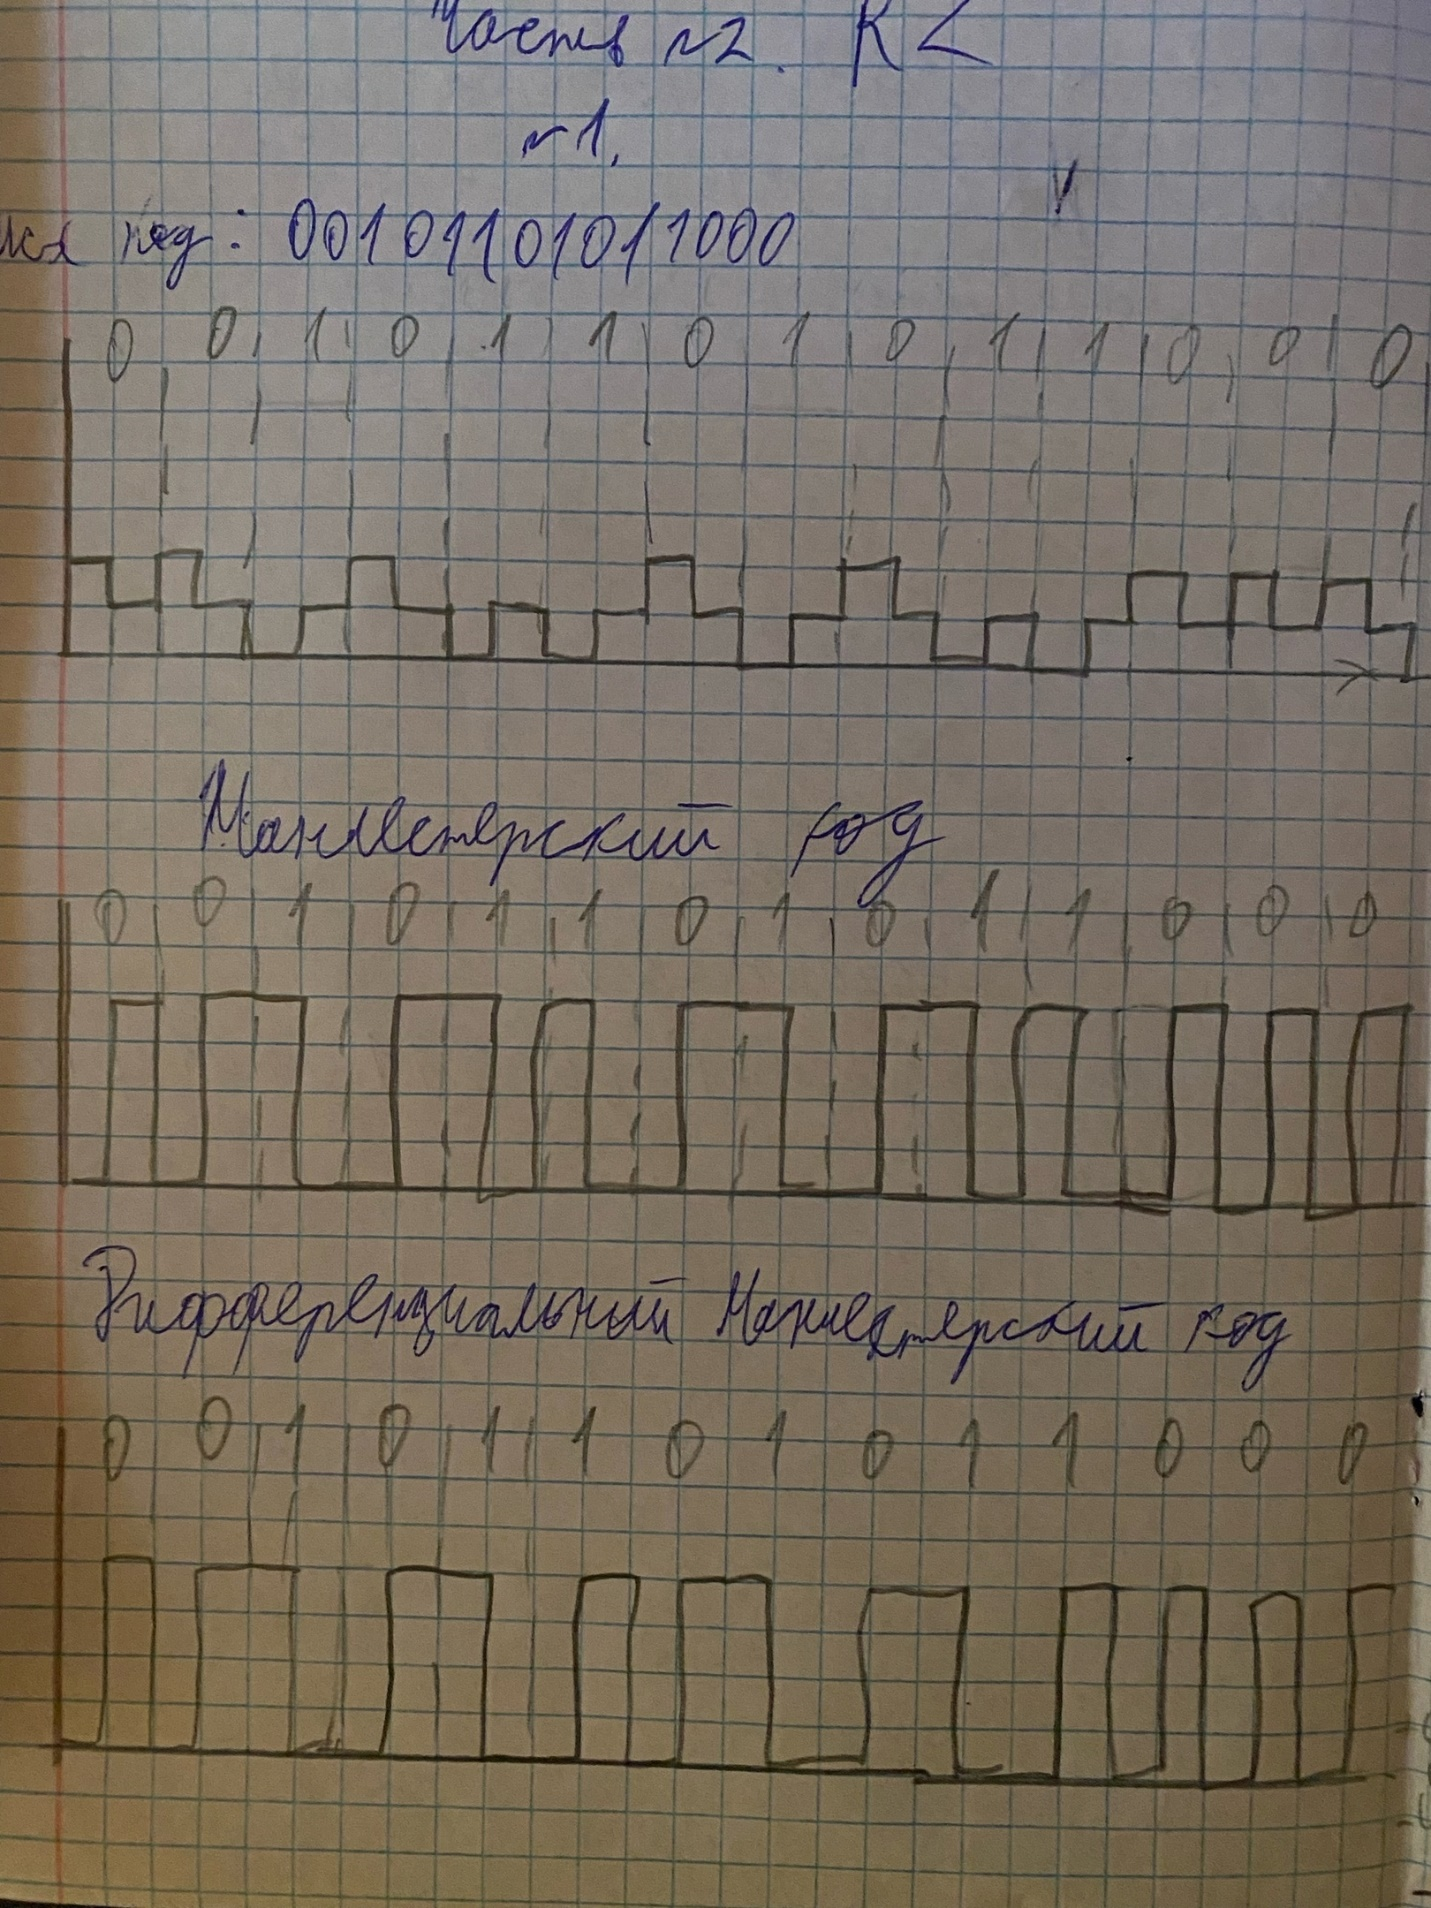 Часть №2. RZ
№1.
код: 00101101011000
0 0 1 0 1 1 0 1 0 1 1 0 0 0
Манчестерский код
0 0 1 0 1 1 0 1 0 1 1 0 0 0
Дифференциальный Манчестерский код
0 0 1 0 1 1 0 1 0 1 1 0 0 0